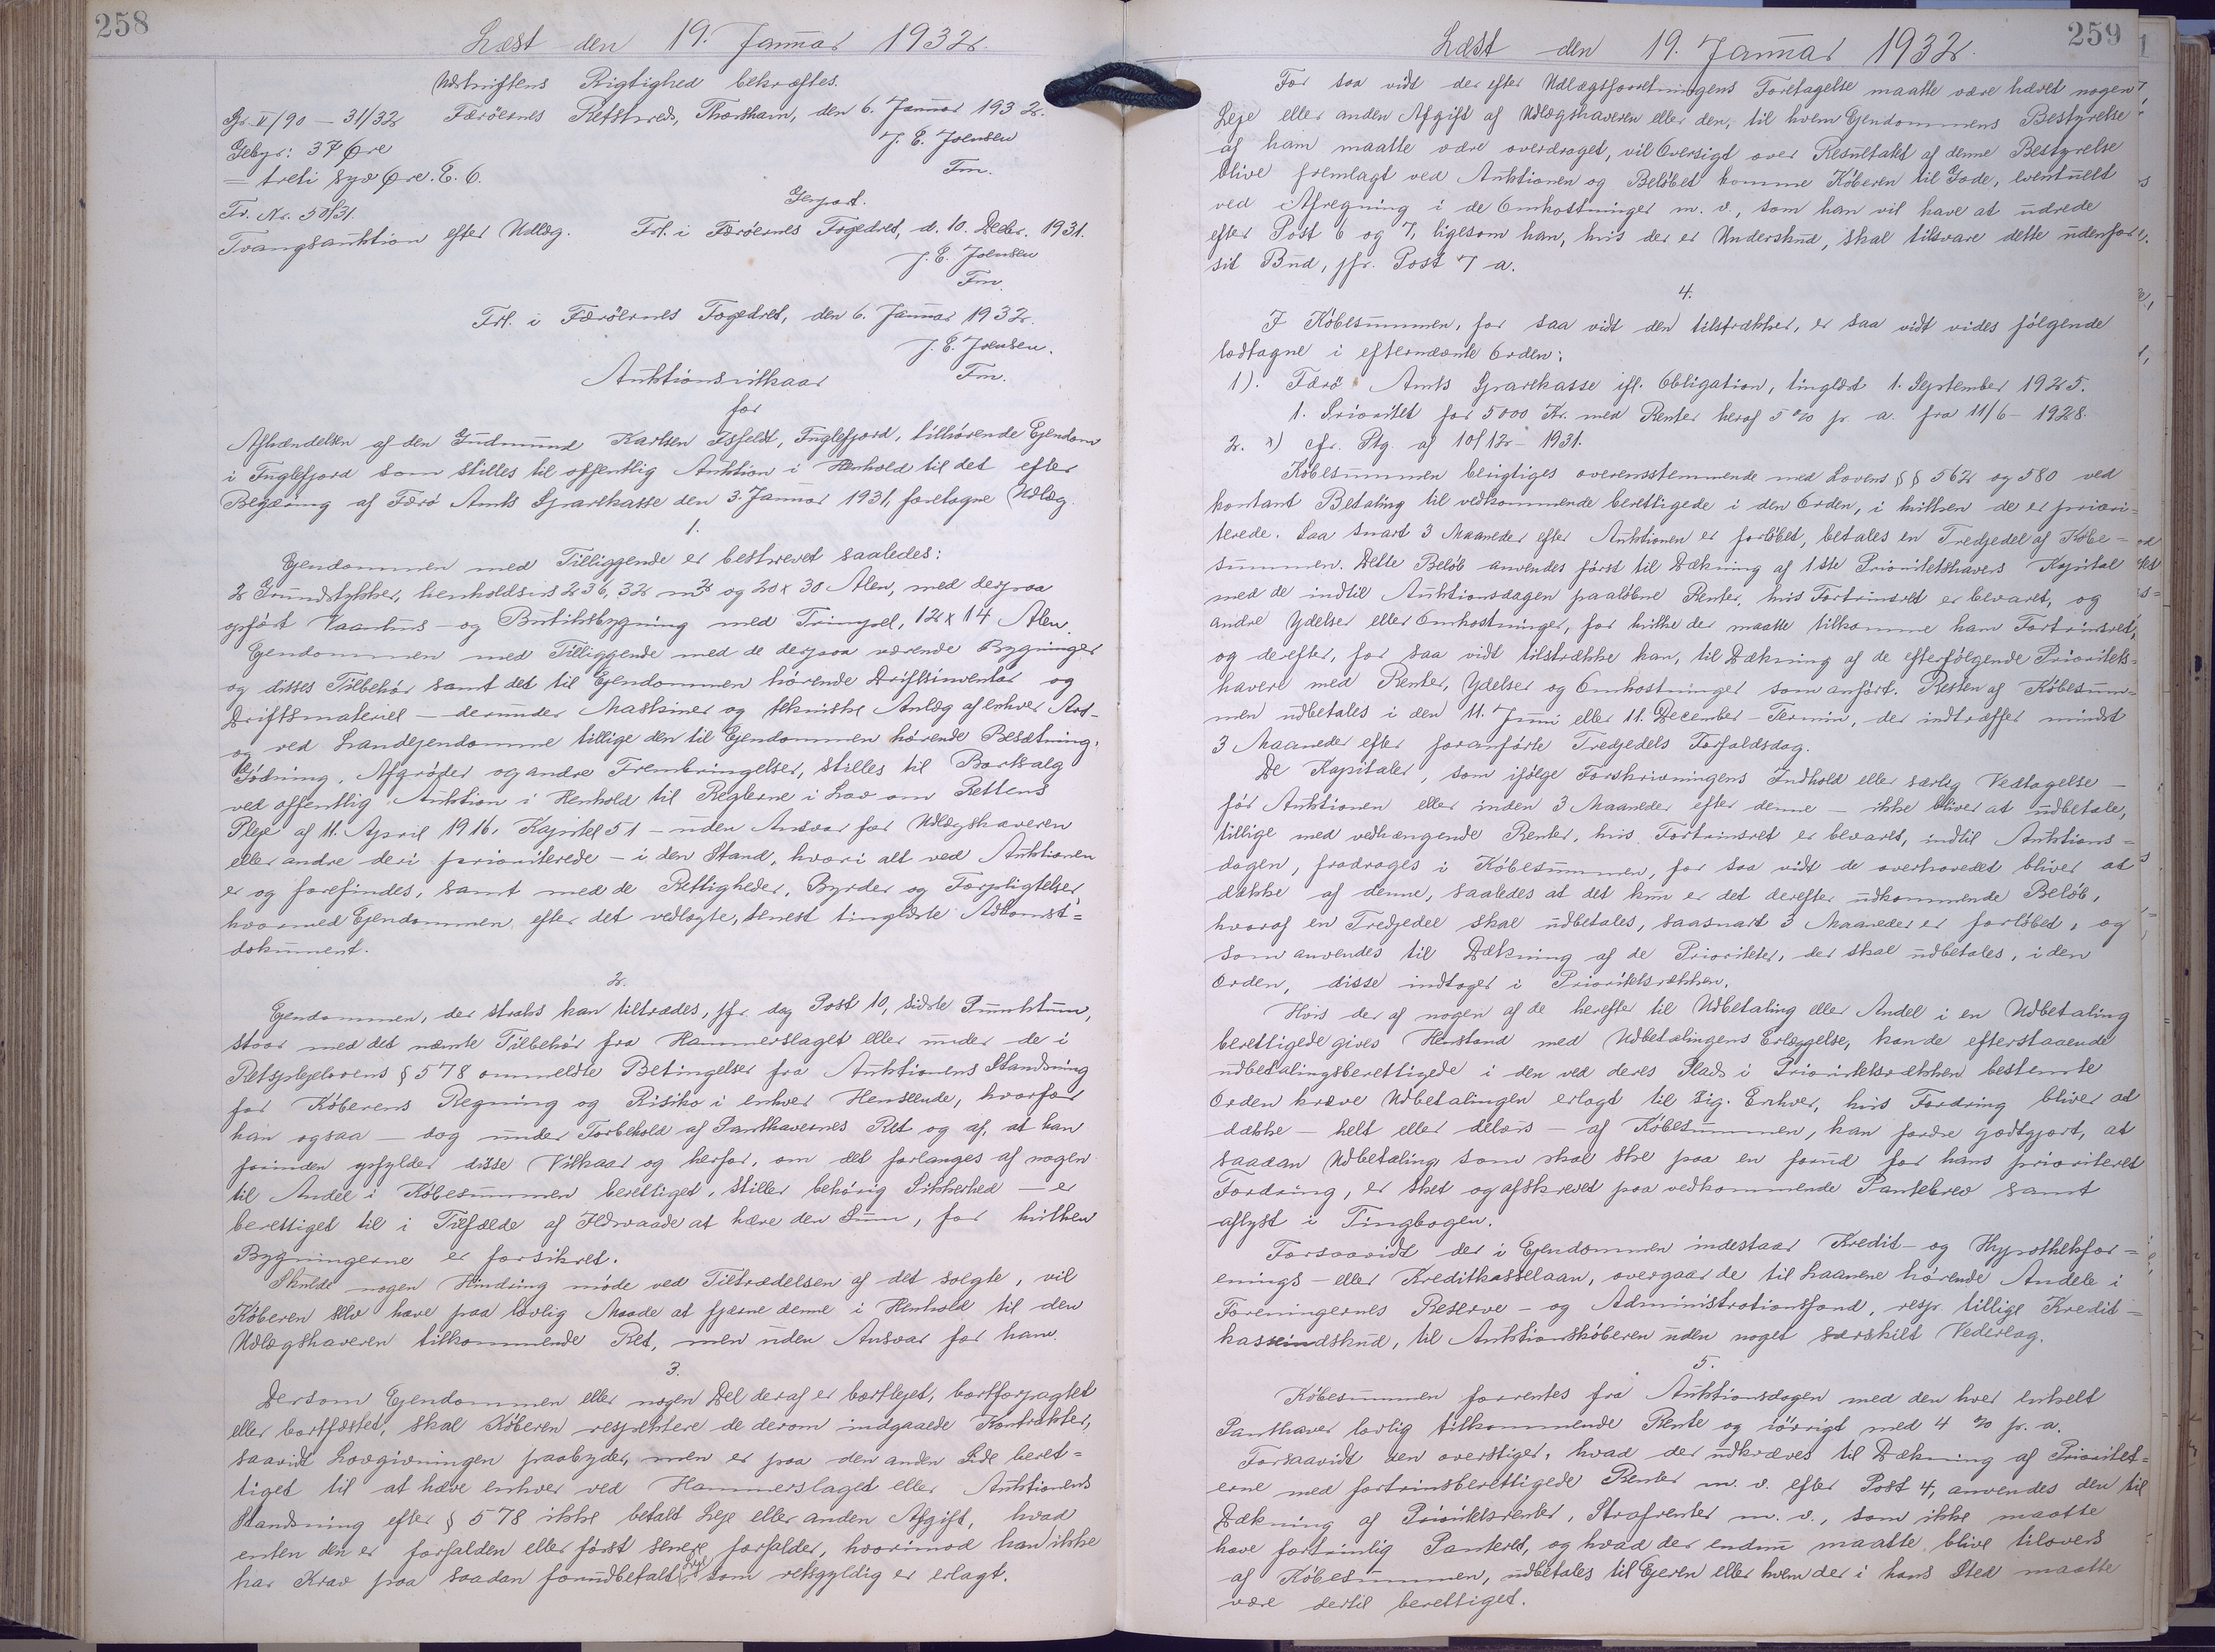 258
Læst den 19. Januar 1932.
Udskriftens Rigtighed bekræftes.
Gr. II/90 – 31/32 Færöernes Retskreds, Thorshavn, den 6. Januar 1932.
Gebyr: 37 Øre J. E. Joensen
= treti syv Øre. E. 6. Fm.
Genpart.
Fr. Nr. 58/31.
Tvangsauktion efter Udlæg. Frl. i Færöernes Fogedret, d. 10. Decbr. 1931.
J. E. Joensen
Fm.
Frl. i Færöernes Fogedret, den 6. Januar 1932.
J. E. Joensen.
Auktionsvilkaar Fm.
for
Afhændelsen af den Gudmund Karlsen Isfeldt, Fuglefjord, tilhørende Ejendom
i Fuglefjord som stilles til offentlig Auktion i Henhold til det efter
Begæring af Færö Amts Sparekasse den 3. Januar 1931, foretagne Udlæg.
1.
Ejendommen med Tilliggende er beskrevet saaledes:
2 Grundstykker, henholdsvis 236,32 m² og 20 x 30 Alen, med derpaa
opført Vaanhus- og Butiksbygning med Trimpel, 12 x 14 Alen.
Ejendommen med Tilliggende med de derpaa værende Bygninger
og disses Tilbehør samt det til Ejendommen hørende Driftsinventar og
Driftsmateriel – derunder Maskiner og tekniske Anlæg af enhver Art –
og ved Landejendomme tillige den til Ejendommen hørende Besætning,
Gødning, Afgrøder og andre Frembringelser, stilles til Bortsalg
ved offentlig Auktion i Henhold til Reglerne i Lov om Rettens
Pleje af 11. April 1916, Kapitel 51 – uden Ansvar for Udlægshaveren
eller andre deri prioriterede – i den Stand, hvori alt ved Auktionen
er og forefindes, samt med de Rettigheder, Byrder og Forpligtelser,
hvormed Ejendommen, efter det vedlagte, senest tinglæste Adkomst=
dokument.
2.
Ejendommen, der straks kan tiltrædes, jfr dog Post 10, sidste Punktum,
staar med det nævnte Tilbehør fra Hammerslaget eller under de i
Retsplejelovens § 578 ommeldte Betingelser fra Auktionens Standsning
for Køberens Regning og Risiko i enhver Henseende, hvorfor
han ogsaa – dog under Forbehold af Panthavernes Ret og af, at han
forinden opfylder disse Vilkaar og herfor, om det forlanges af nogen
til Andel i Købesummen berettiget, stiller behørig Sikkerhed – er
berettiget til i Tilfælde af Ildsvaade at hæve den Sum, for hvilken
Bygningerne er forsikret.
Skulde nogen Hindring møde ved Tiltrædelsen af det solgte, vil
Køberen selv have paa lovlig Maade at fjærne denne i Henhold til den
Udlægshaveren tilkommende Ret, men uden Ansvar for ham.
3.
Dersom Ejendommen eller nogen Del deraf er bortlejet, bortforpagtet
eller bortfæstet, skal Køberen respektere de derom indgaaede Kontrakter,
saavidt Lovgivningen paabyder, men er paa den anden Side beret=
tiget til at hæve enhver ved Hammerslaget eller Auktionens
Standsning efter § 578 ikke betalt Leje eller anden Afgift, hvad
enten den er forfalden eller først senere forfalder, hvorimod han ikke
har Krav paa saadan forudbetalt Leje som retsgyldig er erlagt.
259
Læst den 19. Januar 1932.
For saa vidt der efter Udlægsforretningens Foretagelse maatte være hævet nogen
Leje eller anden Afgift af Udlægshaveren eller den, til hvem Ejendommens Bestyrelse
af ham maatte være overdraget, vil Oversigt over Resultatet af denne Bestyrelse
blive fremlagt ved Auktionen og Beløbet komme Køberen til Gode, eventuelt
ved Afregning i de Omkostninger m. v., som han vil have at udrede
efter Post 6 og 7, ligesom han, hvis der er Underskud, skal tilsvare dette udenfor
sit Bud, jfr. Post 7 a.
4.
I Købesummen, for saa vidt den tilstrækker, er saa vidt vides følgende
lodtagne i efternævnte Orden:
1). Færö Amts Sparekasse ifl. Obligation, tinglæst 1. September 1925.
1. Prioritet for 5000 Kr. med Renter heraf 5 % pr. a. fra 11/6 – 1928.
2. x) cfr. Ptg. af 10/12 – 1931.
Købesummen berigtiges overensstemmende med Lovens §§ 562 og 580 ved
kontant Betaling til vedkommende berettigede i den Orden, i hvilken de er priori=
terede. Saa snart 3 Maaneder efter Auktionen er forløbet, betales en Tredjedel af Købe=
summen. Dette Beløb anvendes først til Dækning af 1ste Prioritetshavers Kapital
med de indtil Auktionsdagen paaløbne Renter, hvis Fortrinsret er bevaret, og
andre Ydelser eller Omkostninger, for hvilke der maatte tilkomme ham Fortrinsret,
og derefter, for saa vidt tilstrække kan, til Dækning af de efterfølgende Prioritets=
havere med Renter, Ydelser og Omkostninger som anført. Resten af Købesum=
men udbetales i den 11. Juni eller 11. December-Termin, der indtræffer mindst
3 Maaneder efter foranførte Tredjedels Forfaldsdag.
De Kapitaler, som ifølge Forskrivningens Indhold eller særlig Vedtagelse –
før Auktionen eller inden 3 Maaneder efter denne – ikke bliver at udbetale,
tillige med vedhængende Renter, hvis Fortrinsret er bevaret, indtil Auktions=
dagen, fradrages i Købesummen, for saa vidt de overhovedet bliver at
dække af denne, saaledes at det kun er det derefter udkommende Beløb,
hvoraf en Tredjedel skal udbetales, saasnart 3 Maaneder er forløbet, og
som anvendes til Dækning af de Prioriteter, der skal udbetales, i den
Orden, disse indtager i Prioritetsrækken.
Hvis der af nogen af de herefter til Udbetaling eller Andel i en Udbetaling
berettigede gives Henstand med Udbetalingens Erlæggelse, kan de efterstaaende
udbetalingsberettigede i den ved deres Plads i Prioritetsrækken bestemte
Orden kræve Udbetalingen erlagt til sig. Enhver, hvis Fordring bliver at
dække – helt eller delvis – af Købesummen, kan fordre godtgjort, at
saadan Udbetaling, som skal ske paa en forud for hans prioriteret
Fordring, er sket og afskrevet paa vedkommende Pantebrev samt
aflyst i Tingbogen.
Forsaavidt der i Ejendommen indestaar Kredit- og Hypothekfor=
enings- eller Kreditkasselaan, overgaar de til Laanene hørende Andele i
Foreningernes Reserve- og Administrationsfond, resp. tillige Kredit=
kasseindskud, til Auktionskøberen uden noget særskilt Vederlag.
5.
Købesummen forrentes fra Auktionsdagen med den hver enkelt
Panthaver lovlig tilkommende Rente og iøvrigt med 4 % pr. a.
Forsaavidt den overstiger, hvad der udkræves til Dækning af Prioritet=
erne med fortrinsberettigede Renter m. v. efter Post 4, anvendes den til
Dækning af Prioritetsrenter, Strafrenter m. v., som ikke maatte
have fortrinlig Panteret, og hvad der endnu maatte blive tilovers
af Købesummen, udbetales til Ejeren eller hvem der i hans Sted maatte
være dertil berettiget.